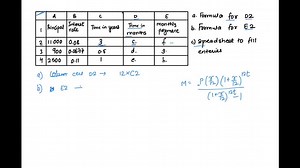 A B C D E
1 Principal Interest rate Time in years Time in months monthly payment
2 11000 0.08 3 c. f.
3 900 0.0677 0.5 d. g.
4 2500 0.11 1 e. h.
a. Formula for D2
b. Formula for E2
c) Spreadsheet to fill
entries
a) Column cell D2 → 12×C2
b) E2 →
M = P(r/12)(1+r/12)^12t
(1+r/12)^12t − 1